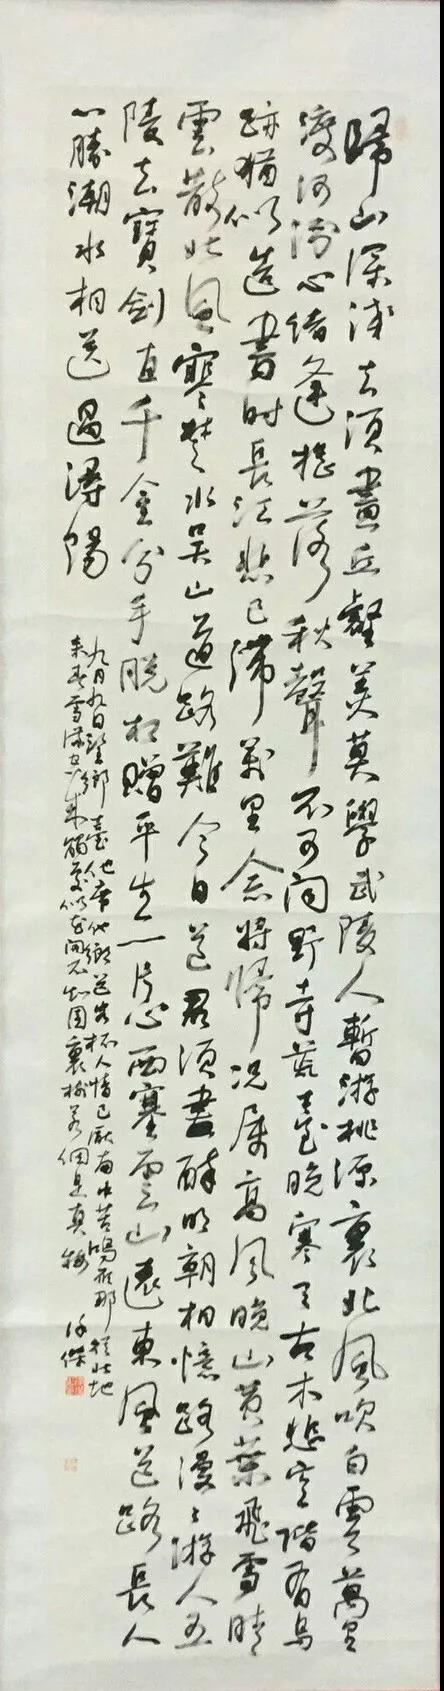 歸山深淺去須盡丘壑美莫學武陵人暫游桃源裏北風吹白雲萬里
渡河汾心緒逢搖落秋聲不可聞野寺荒臺晚寒天古木悲空階有鳥
跡猶似造書時長江悲已滯萬里念將歸況屬高風晚山黃葉飛雪晴
雲散北風寒楚水吳山道路難今日送君須盡醉明朝相憶路漫々游人五
陵去寶劍直千金分手脫相贈平生一片心西塞雲山遠東風道路長人
心勝潮水相送過潯陽
九月九日望鄉臺他席他鄉送客杯人情已厭南中苦鴻雁那從北地
來春雪滿空來觸處似花開不知園裏樹若個是真梅 許傑